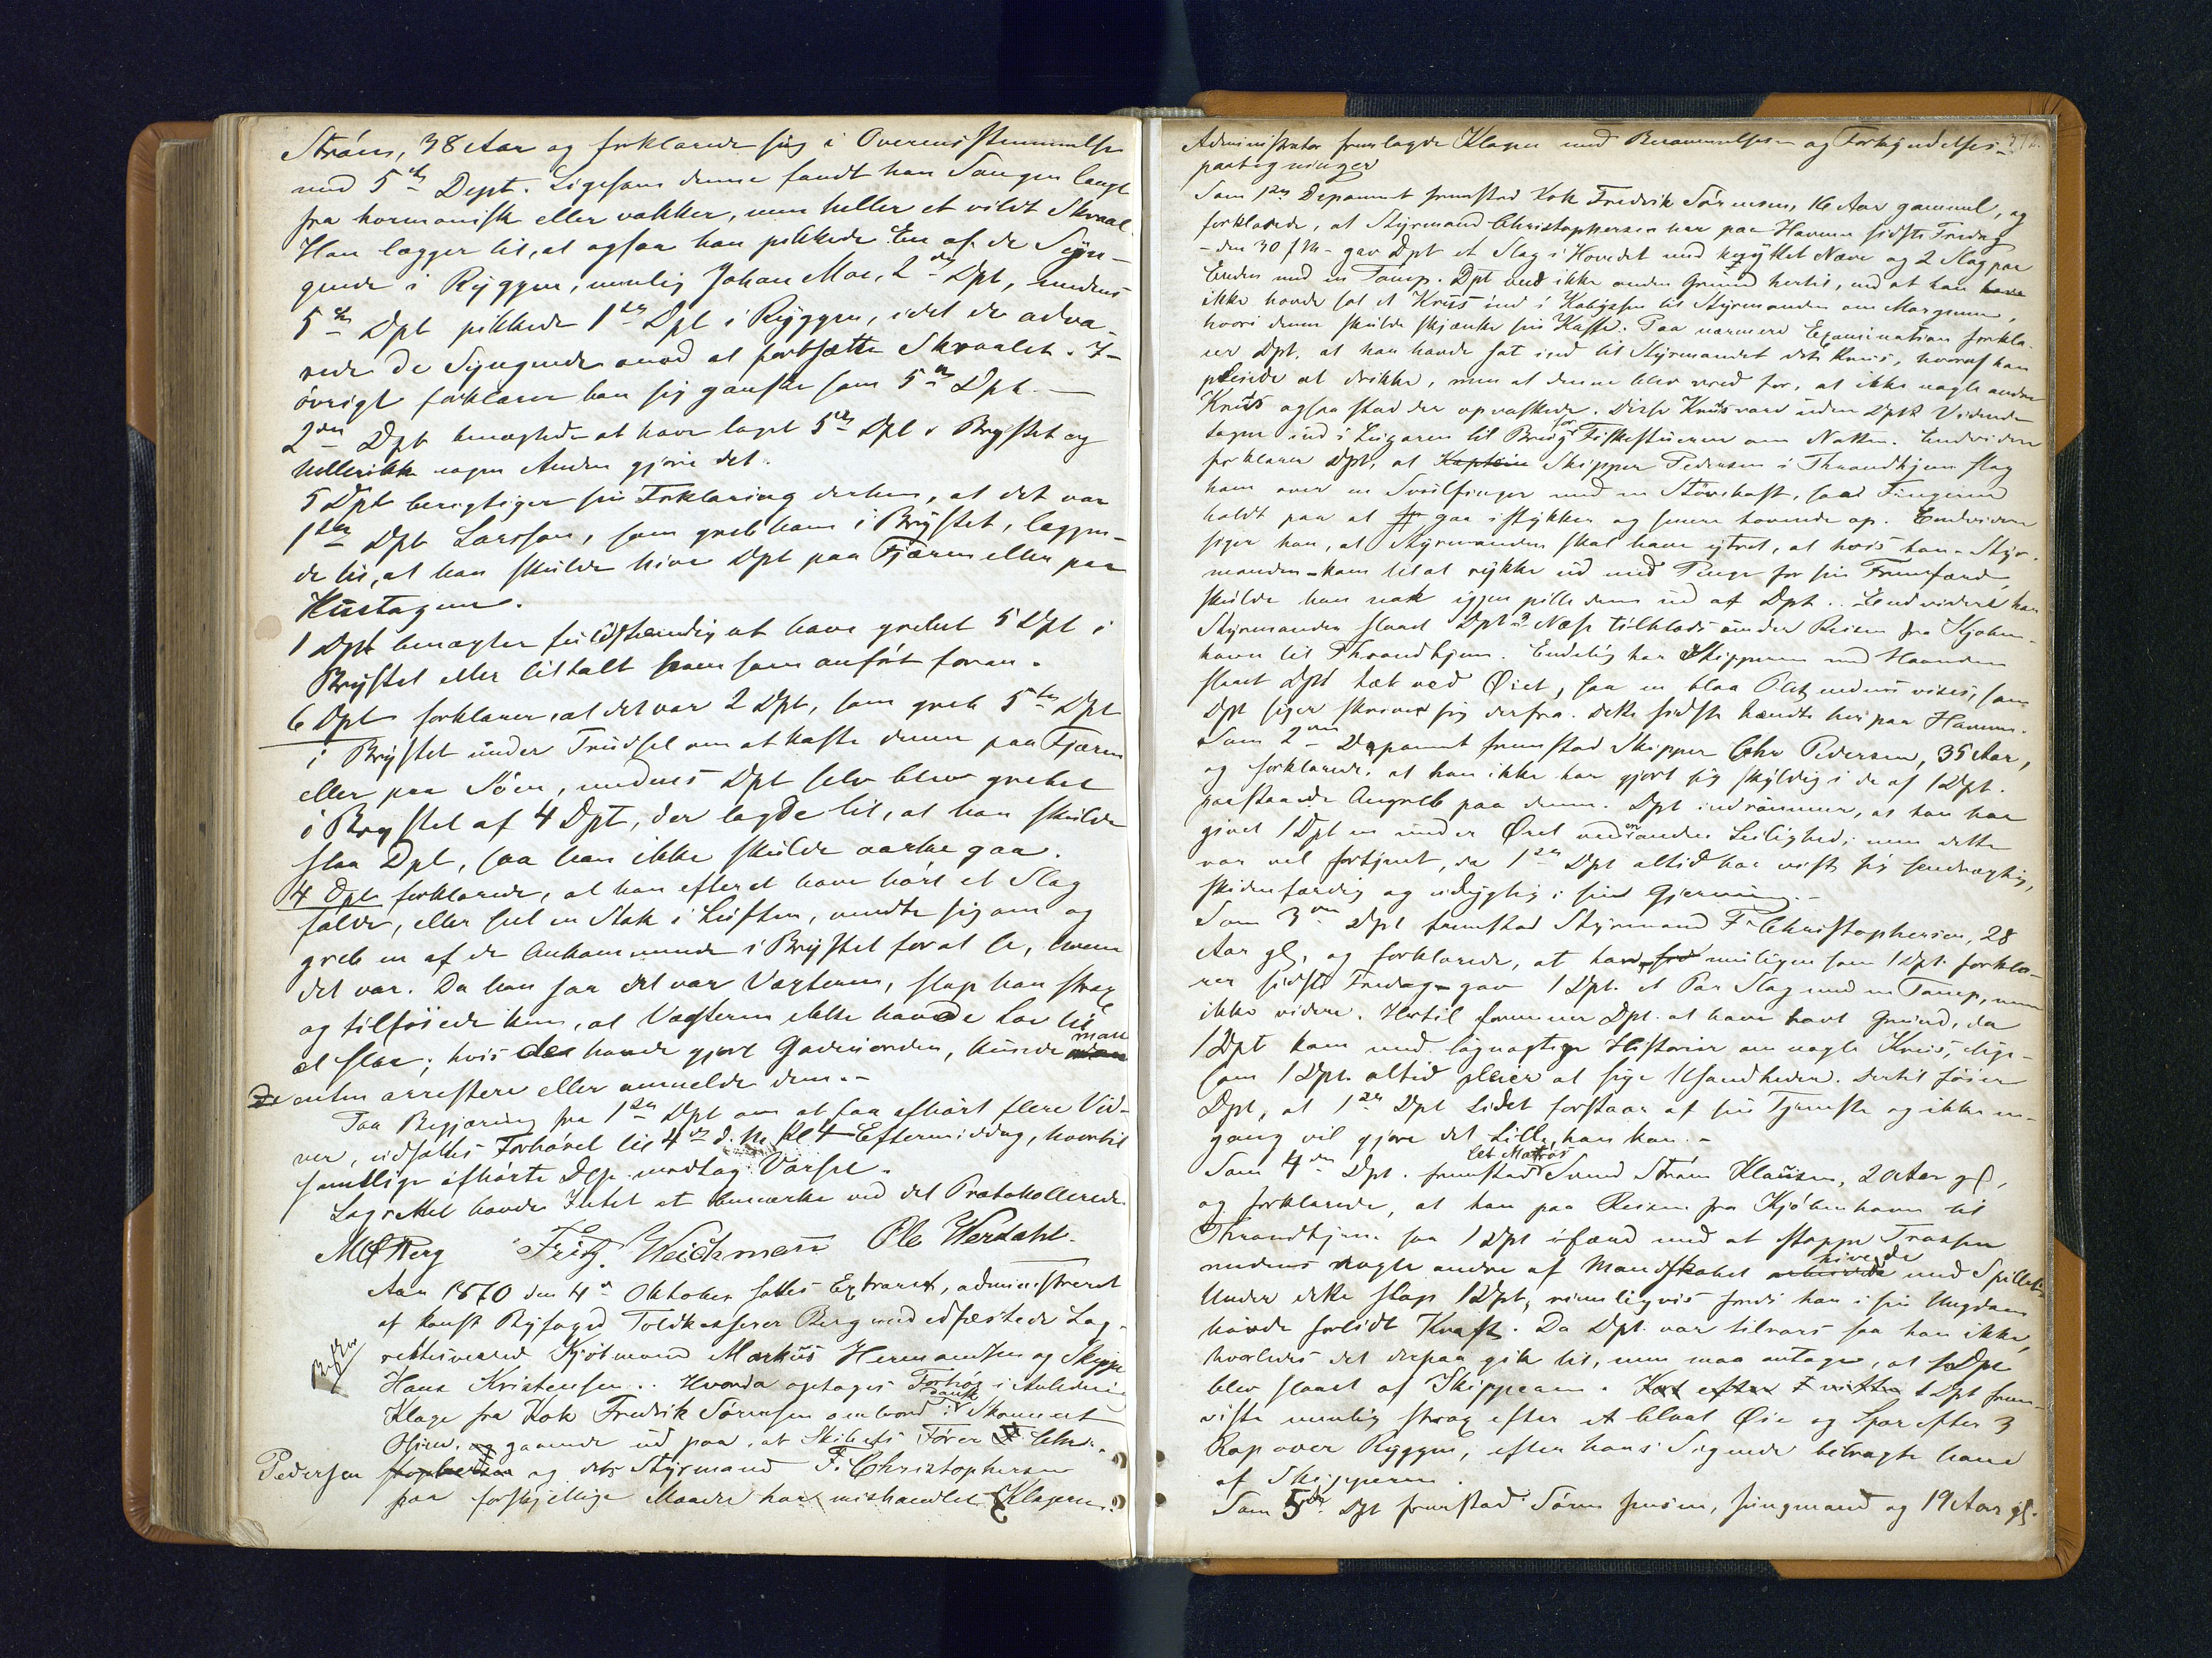 Strøm, 38 Aar og forklarede sig i Overensstemmelse
med 5te Dept. Ligesom denne fandt han Sangen langt
fra harmonisk eller vakker, men heller et vildt Skraal.
Han lægger til, at ogsaa han pikkede En af de Syn-
gende i Ryggen, nemlig Johan Moe, 2den Dpt, medens
5te Dpt pikkede 1ste Dpt i Ryggen, idet de adva-
rede de Syngende mod at fortsætte Skraalet. I-
øvrigt forklarer han sig ganske som 5te Dpt. —
2den Dpt benægtede at have taget 5te Dpt i Brystet og
hellerikke nogen Anden gjøre det.
5 Dpt berigtiger sin Forklaring derhen, at det var
1ste Dpt Larssen, som greb ham i Brystet, læggen-
de til, at han skulde hive Dpt paa Fjæren eller paa
Hustagene.
1 Dpt benægter fuldstændig at have grebet 5 Dpt i
Brystet eller tiltalt ham som anført foran.
6 Dpt forklarer, at det var 2 Dpt, som greb 5te Dpt
i Brystet under Trudsel om at kaste denne paa Fjæren
eller paa Søen, medens Dpt selv blev grebet
i Brystet af 4 Dpt, der lagde til, at han skulde
slaa Dpt, saa han ikke skulde orke gaa.
4 Dpt forklarede, at han efter at have hørt et Slag
falde, eller set en Stok i Luften, vendte sig om og
greb en af de Ankommende i Brystet for at se, hvem
det var. Da han saa det var Vægteren, slap han strax
og tilføiede ham, at Vægteren ikke havde Lov til
at slaa; hvis de havde gjort Gadeuorden, kunde man
enten arrestere eller anmelde dem. –
Paa Begjæring fra 1ste Dpt om at faa afhørt flere Vid-
ner, udsattes Forhøret til 4de d. M. Kl 4 Eftermiddag, hvortil
samtlige afhørte Dep. modtog Varsel.
Lagrettet havde Intet at bemærke ved det Protokollerede
M Berg Fritz Weichmann Ole Werdahl.
Aar 1870 den 4de Oktober sattes Extraret, administreret
af konst Byfoged Toldkasserer Berg med edfæstede Lag-
rettesmænd Kjøbmand Markus Hermandsen og Skipper
Hans Kristensen. Hvorda optoges Forhør i Anledning
Klage fra Kok Fredrik Sørensen ombord i dansk Skonnert
gaaende ud paa, at Skibets Fører Chr.
Pedersen og dets Styrmand F. Christophersen
paa forskjellige Maader har mishandlet Klageren.
Administrator fremlagde Klagen med Berammelses- og Forkyndelses-
paategninger
Som 1ste Deponent fremstod Kok Fredrik Sørensen, 16 Aar gammel, og
forklarede, at Styrmand Christophersen her paa Havnen sidste Fredag
– den 30 f M – gav Dpt et Slag i Hovedet med knyttet Næve og 2 Slag paa
Enden med en Tamp. Dpt ved ikke anden Grund hertil, end at han
ikke havde sat et Krus ind i Kahyssen til Styrmanden om Morgenen,
hvori denne skulde skjænke sin Kaffe. Paa nærmere Examination forkla-
rer Dpt, at han havde sat ind til Styrmandet det Krus, hvoraf han
pleiede at drikke, men at denne blev vred for, at ikke nogle andre
Krus ogsaa stod der opvaskede. Disse Krus vare uden Dpts Vidende
tagne ind i Lugaren til Brug for Fiskestuerne om Natten. Endvidere
forklarer Dpt, at Skipper Pedersen i Throndhjem slog
ham over en Svulfinger med en Støvekost, saa Fingeren
holdt paa at gaa istykker og senere hovnede op. Endvidere
siger han, at Styrmanden skal have ytret, at hvis han – Styr-
manden – kom til at rykke ud med Penge for sin Fremfærd,
skulde han nok igjen pille dem ud af Dpt. Endvidere har
Styrmanden slaaet Dpts Næse tilblods under Reisen fra Kjøben-
havn til Throndhjem. Endelig har Skipperen med Haanden
slaaet Dpt tæt ved Øiet, saa en blaa Plet endnu vises, som
Dpt siger skriver sig derfra. Dette sidste hændte her paa Havnen.
Som 2den Deponent fremstod Skipper Chr Pedersen, 35 Aar,
og forklarede, at han ikke har gjort sig skyldig i de af 1 Dpt.
paastaaede Angreb paa denne. Dpt indrømmer, at han har
givet 1 Dpt en under Øret ved en anden Leilighed; men dette
var vel fortjent, da 1ste Dpt altid har vist sig sendrægtig,
skidenfærdig og udygtig i sin Gjerning. –
Som 3die Dpt fremstod Styrmand F. Christophersen, 28
Aar gl, og forklarede, at han, nemligen som 1 Dpt. forkla-
rer sidste Fredag – gav 1 Dpt. et Par Slag med en Tamp, men
ikke videre. Hertil formener Dpt. at have havt Grund, da
1 Dpt kom med løgnagtige Historier om nogle Krus, lige-
som 1 Dpt. altid pleier at sige Usandheder. Dertil føier
Dpt, at 1ste Dpt Lidet forstaar af sin Tjeneste og ikke en-
gang vil gjøre det Lille, han kan. –
Som 4de Dpt. fremstod Let Matros Svend Strøm Klausen, 20 Aar gl,
og forklarede, at han paa Reisen fra Kjøbenhavn til
Throndhjem saa 1 Dpt ifærd med at stoppe Trossen
medens nogle andre af Mandskabet hivede med Spillet.
Under dette slap 1 Dpt, rimeligvis fordi han i sin Ungdom
havde forlidt Kraft. Da Dpt. var tilvors saa han ikke,
hvorledes det derpaa gik til, men maa antage, at 1 Dpt
blev slaaet af Skipperen. 1 Dpt frem-
viste nemlig strax efter et blaat Øie og Spor efter 3
Rap over Ryggen, efter hans Sigende bibragte ham
af Skipperen.
Som 5te Dpt fremstod Søren Jensen, Jungmand og 19 Aar gl.